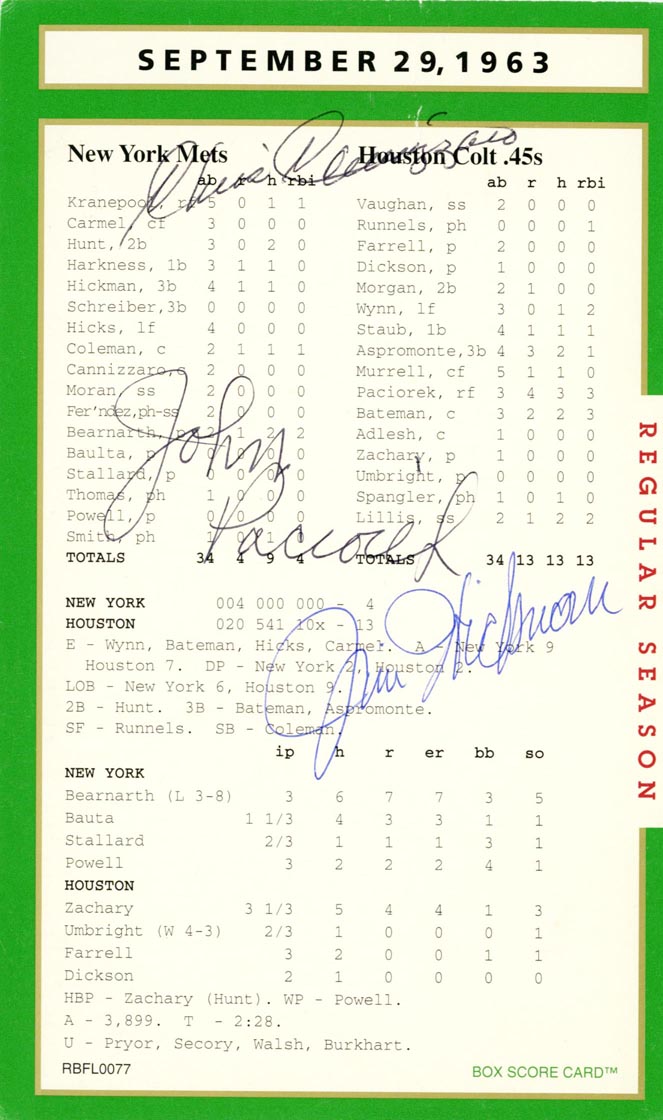 SEPTEMBER 29, 1963
New York Mets
ab r h rbi
Kranepool, rf 5 0 1 1
Carmel, cf 3 0 0 0
Hunt, 2b 3 0 2 0
Harkness, 1b 3 1 1 0
Hickman, 3b 4 1 1 0
Schreiber,3b 0 0 0 0
Hicks, lf 4 0 0 0
Coleman, c 2 1 1 1
Cannizzaro,c 2 0 0 0
Moran, ss 2 0 0 0
Fer'ndez,ph-ss 2 0 0 0
Bearnarth, p 2 1 2 2
Baulta, p 0 0 0 0
Stallard, p 0 0 0 0
Thomas, ph 1 0 0 0
Powell, p 0 0 0 0
Smith, ph 1 0 1
TOTALS 34 4 9 4
Houston Colt .45s
ab r h rbi
Vaughan, ss 2 0 0 0
Runnels, ph 0 0 0 1
Farrell, p 2 0 0 0
Dickson, p 1 0 0 0
Morgan, 2b 2 1 0 0
Wynn, lf 3 0 1 2
Staub, 1b 4 1 1 1
Aspromonte,3b 4 3 2 1
Murrell, cf 5 1 1 0
Paciorek, rf 3 4 3 3
Bateman, c 3 2 2 3
Adlesh, c 1 0 0 0
Zachary, p 1 0 0 0
Umbright, p 0 0 0 0
Spangler, ph 1 0 1 0
Lillis, ss 2 1 2 2
TOTALS 34 13 13 13
Chris Cannizzaro
John
Paciorek
Jim Hickman
NEW YORK 004 000 000 - 4
HOUSTON 020 541 10x - 13
E - Wynn, Bateman, Hicks, Carmel. A - New York 9
Houston 7. DP - New York 2, Houston 2.
LOB - New York 6, Houston 9.
2B - Hunt. 3B - Bateman, Aspromonte.
SF - Runnels. SB - Coleman.
ip h r er bb so
NEW YORK
Bearnarth (L 3-8) 3 6 7 7 3 5
Bauta 1 1/3 4 3 3 1 1
Stallard 2/3 1 1 1 3 1
Powell 3 2 2 2 4 1
HOUSTON
Zachary 3 1/3 5 4 4 1 3
Umbright (W 4-3) 2/3 1 0 0 0 1
Farrell 3 2 0 0 1 1
Dickson 2 1 0 0 0 0
HBP - Zachary (Hunt). WP - Powell.
A - 3,899. T - 2:28.
U - Pryor, Secory, Walsh, Burkhart.
RBFL0077
BOX SCORE CARD™
REGULAR SEASON